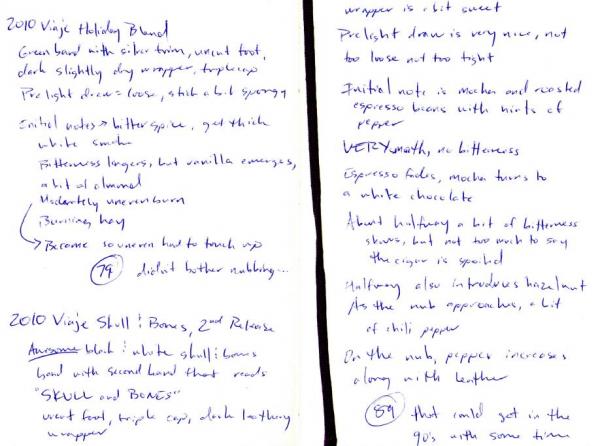 2010 Viaje Holiday Blend
Green band with silver trim, uncut foot,
dark slightly dry wrapper, triple cap
Prelight draw = loose, stick a bit spongy
Initial notes → bitter spice, get thick
white smoke
Bitterness lingers, but vanilla emerges,
a bit of almond
Moderately uneven burn
Burning hay
Became so uneven had to touch up
79 didn't bother nubbing...
2010 Viaje Skull & Bones, 2nd Release
Awesome black & white skull & bones
band with second band that reads
"SKULL and BONES"
uncut foot, triple cap, dark leathery
wrapper
wrapper is a bit sweet
Prelight draw is very nice, not
too loose not too tight
Initial note is mocha and roasted
espresso beans with hints of
pepper
VERY smooth, no bitterness
Espresso fades, mocha turns to
a white chocolate
About halfway a bit of bitterness
shows, but not too much to say
the cigar is spoiled
Halfway also introduces hazelnut
As the nub approaches, a bit
of chili pepper
On the nub, pepper increases
along with leather
89 that could get in the
90's with some time